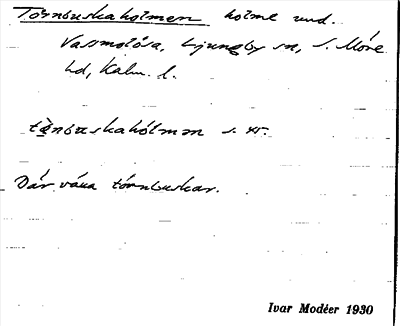 Törnbuskaholmen holme und.
Vassmolösa, Ljungby sn, S. Möre
hd, Kalm. l.
tö̀nbuskahólmən
Där växa törnbuskar.
Ivar Modéer 1930